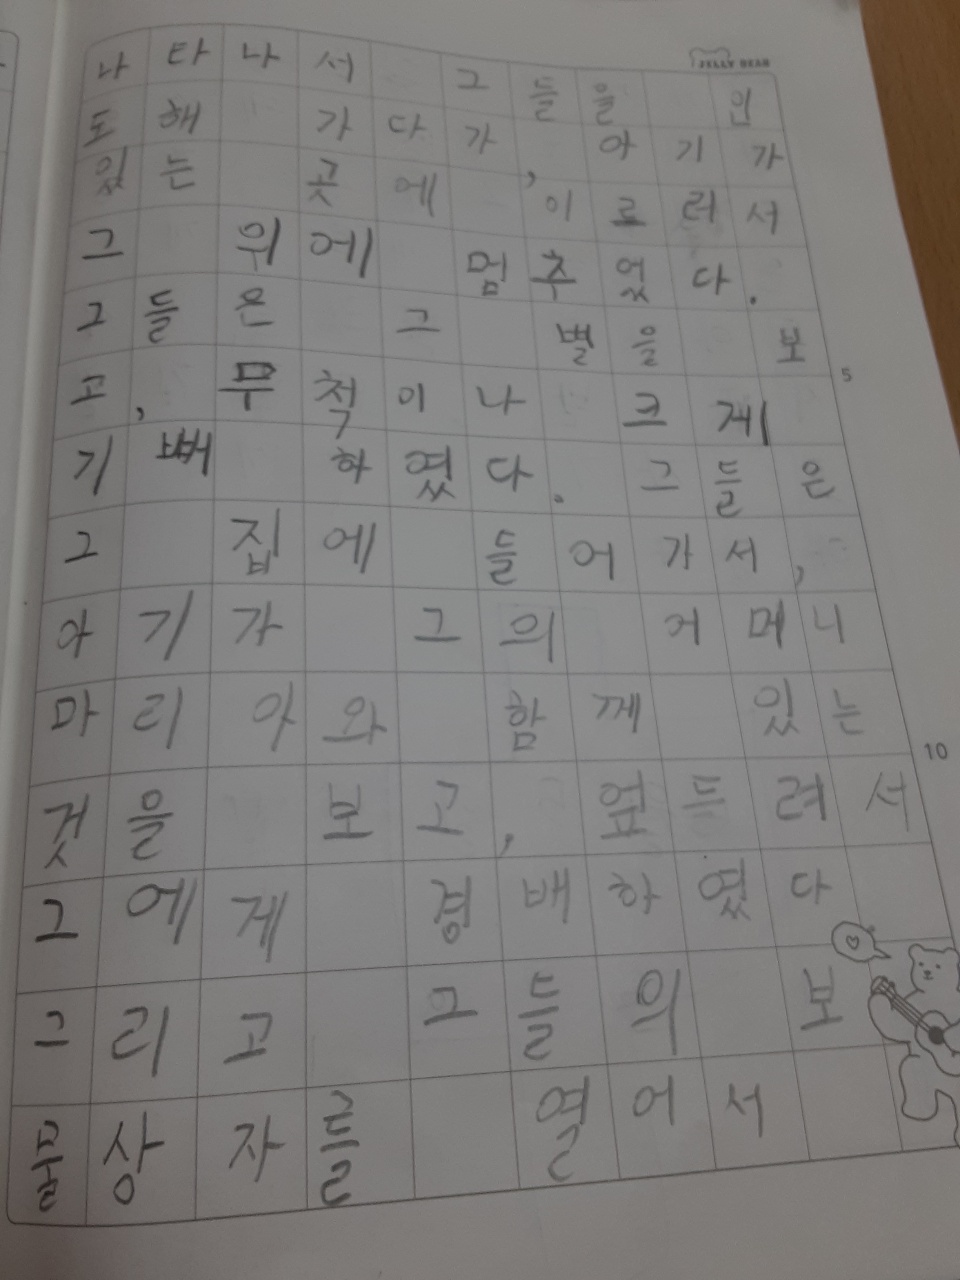 나타나서 그들을 인
JELLY BEAR
도해 가다가, 아기가
있는 곳에 이르러서
그 위에 멈추었다.
그들은 그 별을 보
5
고, 무척이나 크게
기뻐 하였다. 그들은
그 집에 들어가서,
아기가 그의 어머니
마리아와 함께 있는
10
것을 보고, 엎드려서
그에게 경배하였다
그리고 그들의 보
물상자를 열어서